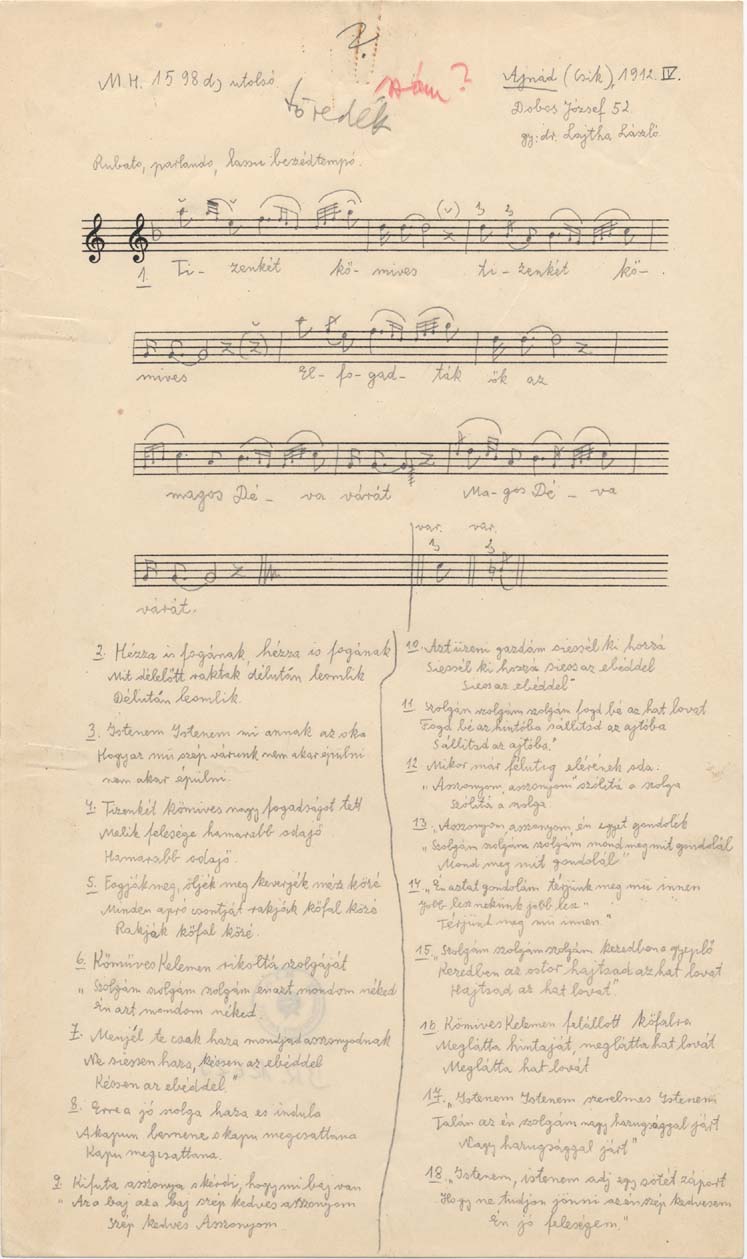 2.
M.H. 1598 d) utolsó
töredék
szám?
Ajnád (Csik), 1912. IV.
Dobos József 52.
gy: dr. Lajtha László.
Rubato, parlando, lassu beszédtempó.
1. Ti- zenkét kö- mives ti- zenkét kö-
mives El- fo- gad- ták ők az
magos Dé- va várát Ma- gos Dé- va
var. var.
várát.
2. Hézza is fogának, hézza is fogának
Mit délelőtt raktak délután leomlik
Délután leomlik.
3. Istenem Istenem mi annak az oka
Hogy az mü szép várunk nem akar épülni
nem akar épülni.
4. Tizenkét kömives nagy fogadságot tett
Melik felesége hamarabb odajő
Hamarabb odajő.
5. Fogják meg, öljék meg keverjék mész közé
Minden apró csontját rakják kőfal közé
Rakják kőfal közé.
6. Kőmüves Kelemen rikoltá szolgáját
"Szolgám szolgám szolgám én azt mondom néked
Én azt mondom néked.
7. Menjél te csak haza mondjad asszonyodnak
Ne siessen haza, késsen az ebéddel
Késsen az ebéddel."
8. Erre a jó szolga haza es indula
A kapun bemene s kapu megcsattana
Kapu megcsattana.
9. Kifuta asszonya s kérdi, hogy mi baj van
"Az a baj az a baj szép kedves asszonyom
Szép kedves Asszonyom
10. Azt üzeni gazdám siessél ki hozzá
Siessél ki hozzá siess az ebéddel
Siess az ebéddel"
11. Szolgám szolgám szolgám fogd bé az hat lovat
Fogd bé az hintóba sállitsd az ajtóba
Sállitsd az ajtóba."
12. Mikor már félutig elérének oda:
"Asszonyom, asszonyom" szólitá a szolga
Szólitá a szolga
13. "Asszonyom, asszonyom, én egyet gondolék
"Szolgám szolgám szolgám mond meg mit gondolál
Mond meg mit gondolál"
14. "Én aztat gondolám térjünk meg mü innen
Jobb lesz nekünk jobb lesz
Térjünk meg mü innen."
15. "Szolgám szolgám szolgám kezedben a gyeplő
Kezedben az ostor hajtsad az hat lovat
Hajtsad az hat lovat"
16. Kömives Kelemen felállott kőfalra
Meglátta hintaját, meglátta hat lovát
Meglátta hat lovát
17. "Istenem Istenem szerelmes Istenem
Talán az én szolgám nagy hazugsággal járt
Nagy hazugsággal járt"
18. "Istenem, istenem adj egy sötét záport
Hogy ne tudjon jönni az én szép kedvesem
Én jó feleségem."